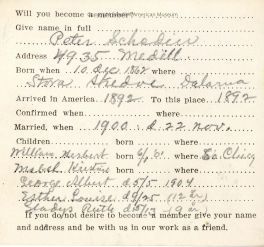 Will you become a member
American Museum
Give name in full
Peter
Address 4935 Medill
Born when 10 Dec 1867 where
Stora Skedvi Dalarna
Arrived in America 1892 To this place 1892
Confirmed when where
Married, when 1900 d. 22 nov.
Children born where
William Herbert born where
Mabel born where
George Albert d. 5/5 1904
Esther Louise
Gladys Ruth
If you do not desire to become a member give your name
and address and be with us in our work as a friend.